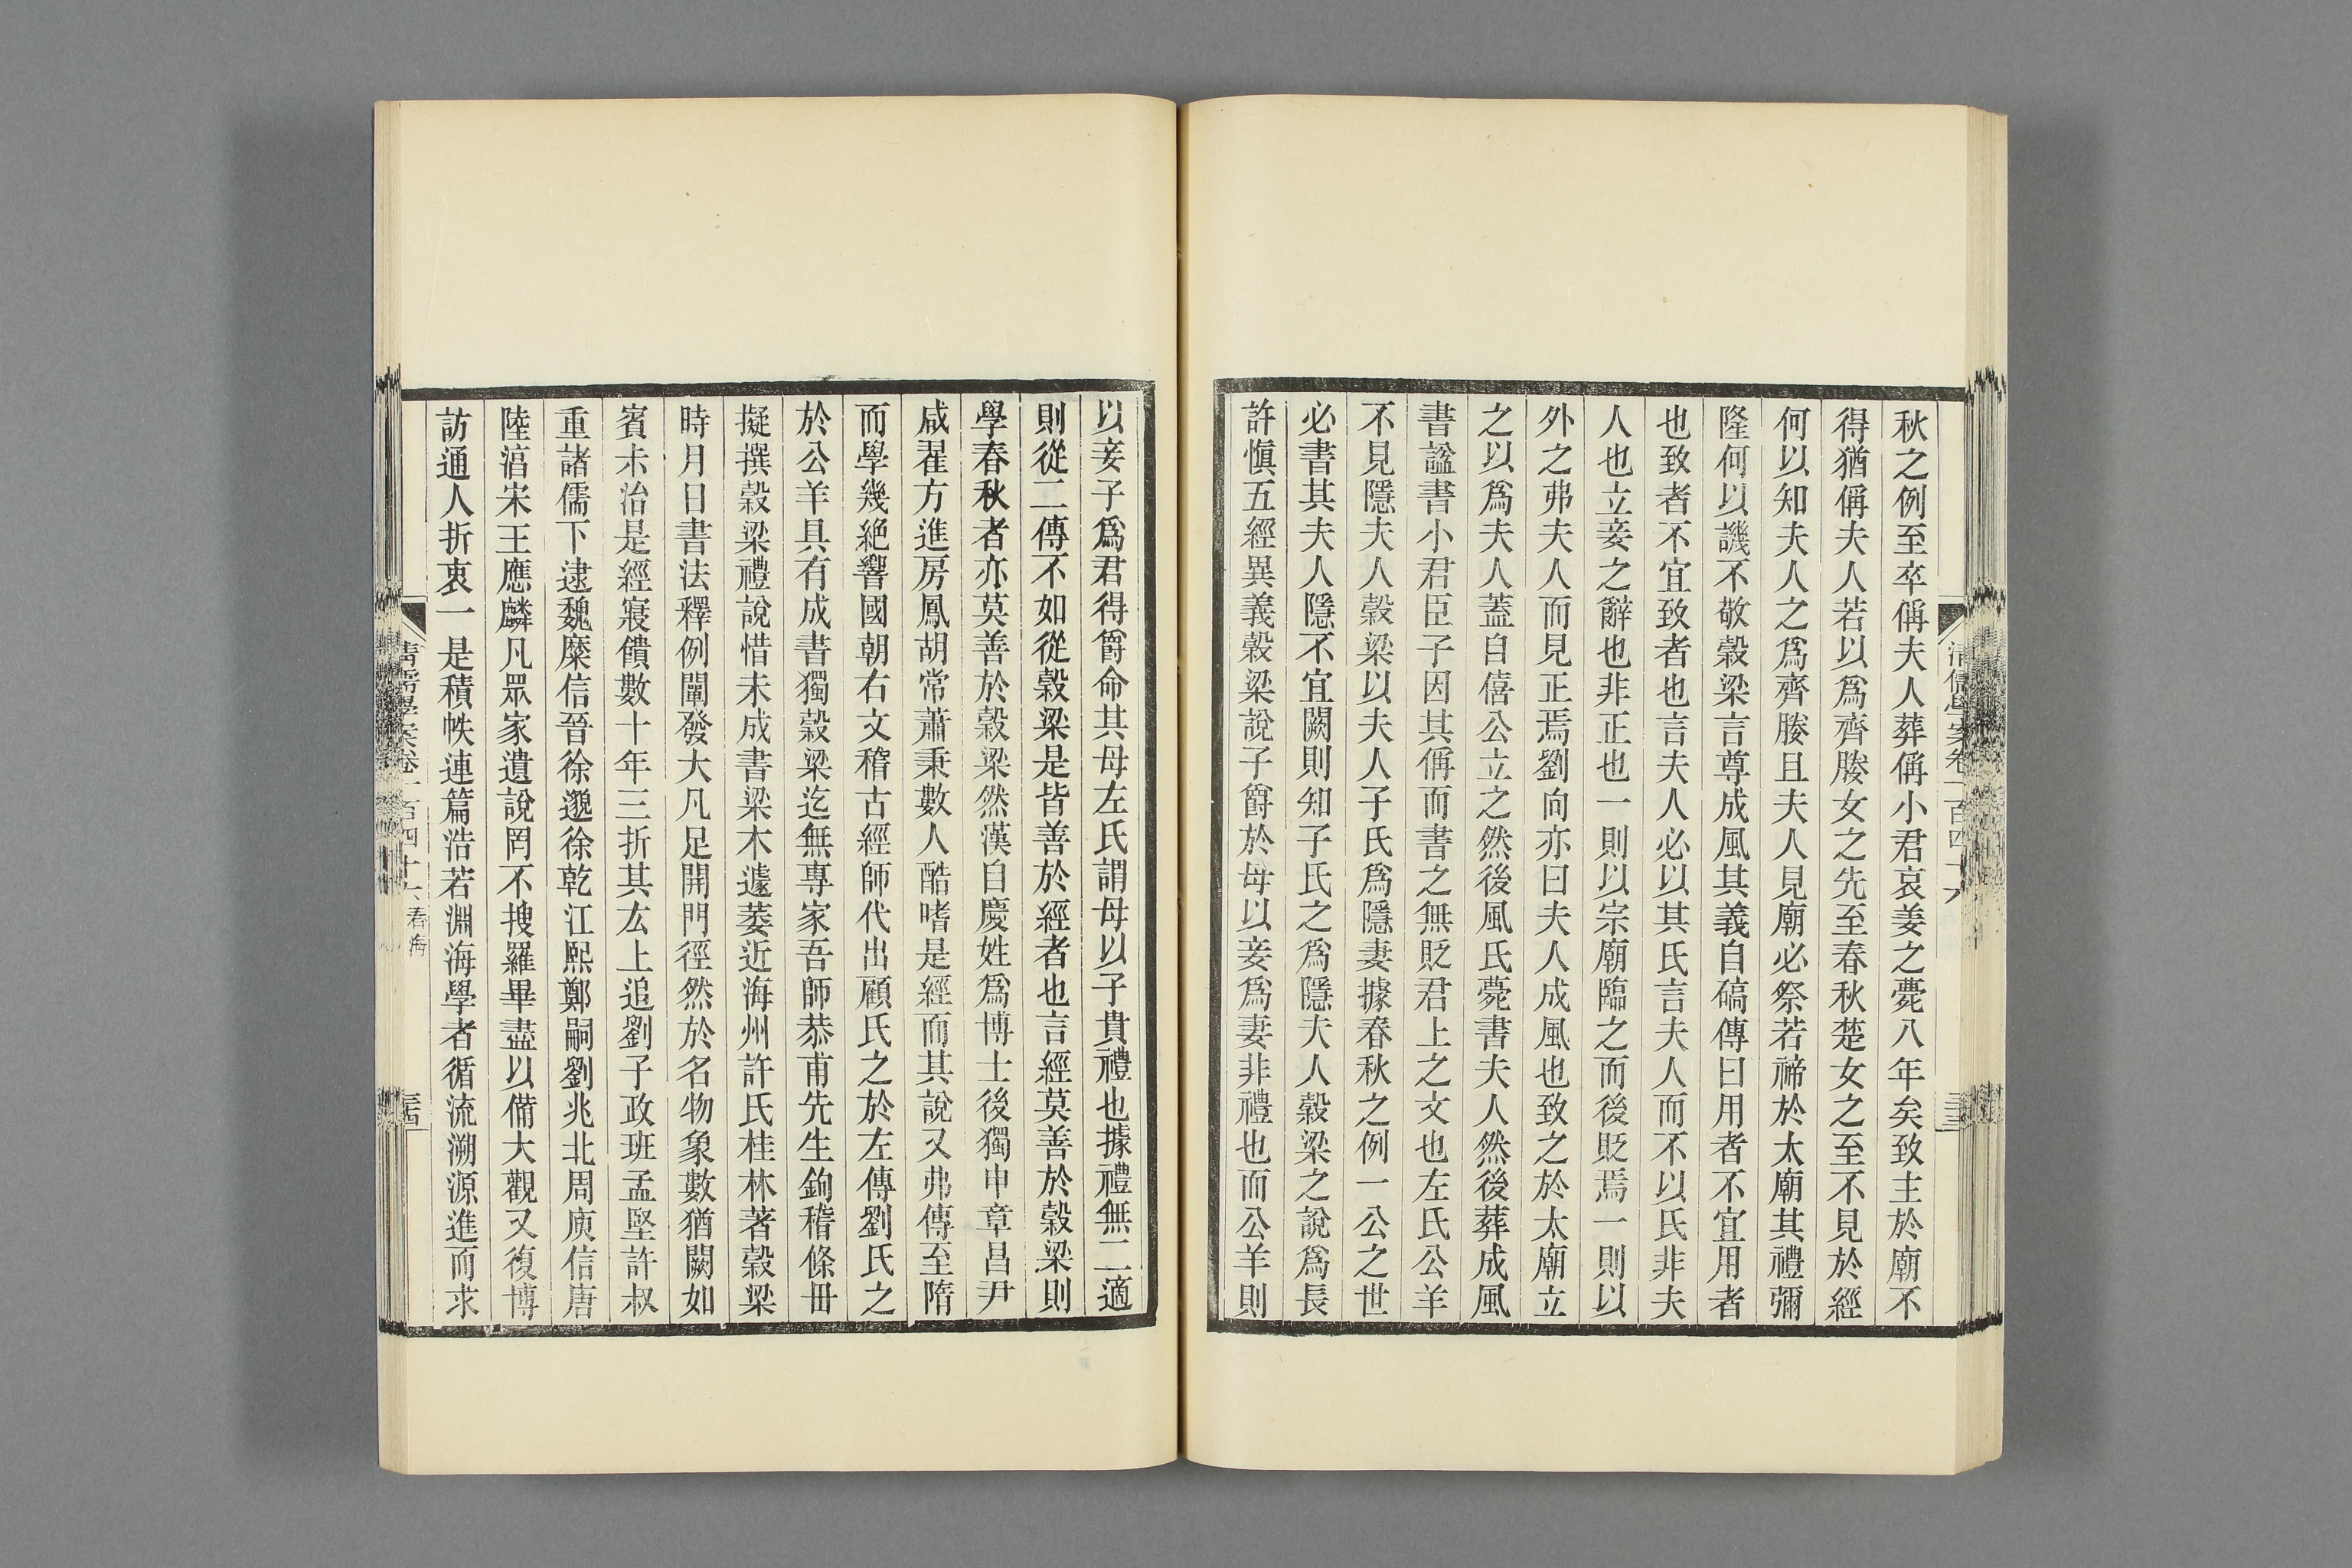 秋之例至卒偁夫人葬偁小君哀姜之薨八年矣致主於廟不
得猶偁夫人若以爲齊媵女之先至春秋楚女之至不見於經
何以知夫人之爲齊媵且夫人見廟必祭若禘於太廟其禮彌
隆何以譏不敬穀梁言尊成風其義自碻傳曰用者不宜用者
也致者不宜致者也言夫人必以其氏言夫人而不以氏非夫
人也立妾之辭也非正也一則以宗廟臨之而後貶焉一則以
外之弗夫人而見正焉劉向亦曰夫人成風也致之於太廟立
之以爲夫人蓋自僖公立之然後風氏薨書夫人然後葬成風
書謚書小君臣子因其偁而書之無貶君上之文也左氏公羊
不見隱夫人穀梁以夫人子氏爲隱妻據春秋之例一公之世
必書其夫人隱不宜闕則知子氏之爲隱夫人穀梁之說爲長
許愼五經異義穀梁說子爵於母以妾爲妻非禮也而公羊則
以妾子爲君得爵命其母左氏謂母以子貴禮也據禮無二適
則從二傳不如從穀梁是皆善於經者也言經莫善於穀梁則
學春秋者亦莫善於穀梁然漢自慶姓爲博士後獨申章昌尹
咸翟方進房鳳胡常蕭秉數人酷嗜是經而其說又弗傳至隋
而學幾絶響國朝右文稽古經師代出顧氏之於左傳劉氏之
於公羊具有成書獨穀梁迄無專家吾師恭甫先生鉤稽條冊
擬撰穀梁禮說惜未成書梁木遽萎近海州許氏桂林著穀梁
時月日書法釋例闡發大凡足開門徑然於名物象數猶闕如
賓未治是經寢饋數十年三折其厷上追劉子政班孟堅許叔
重諸儒下逮魏糜信晉徐邈徐乾江熙鄭嗣劉兆北周庾信唐
陸淳宋王應麟凡眾家遺說罔不搜羅畢盡以備大觀又復博
訪通人折衷一是積帙連篇浩若淵海學者循流溯源進而求
清儒學案卷一百四十六